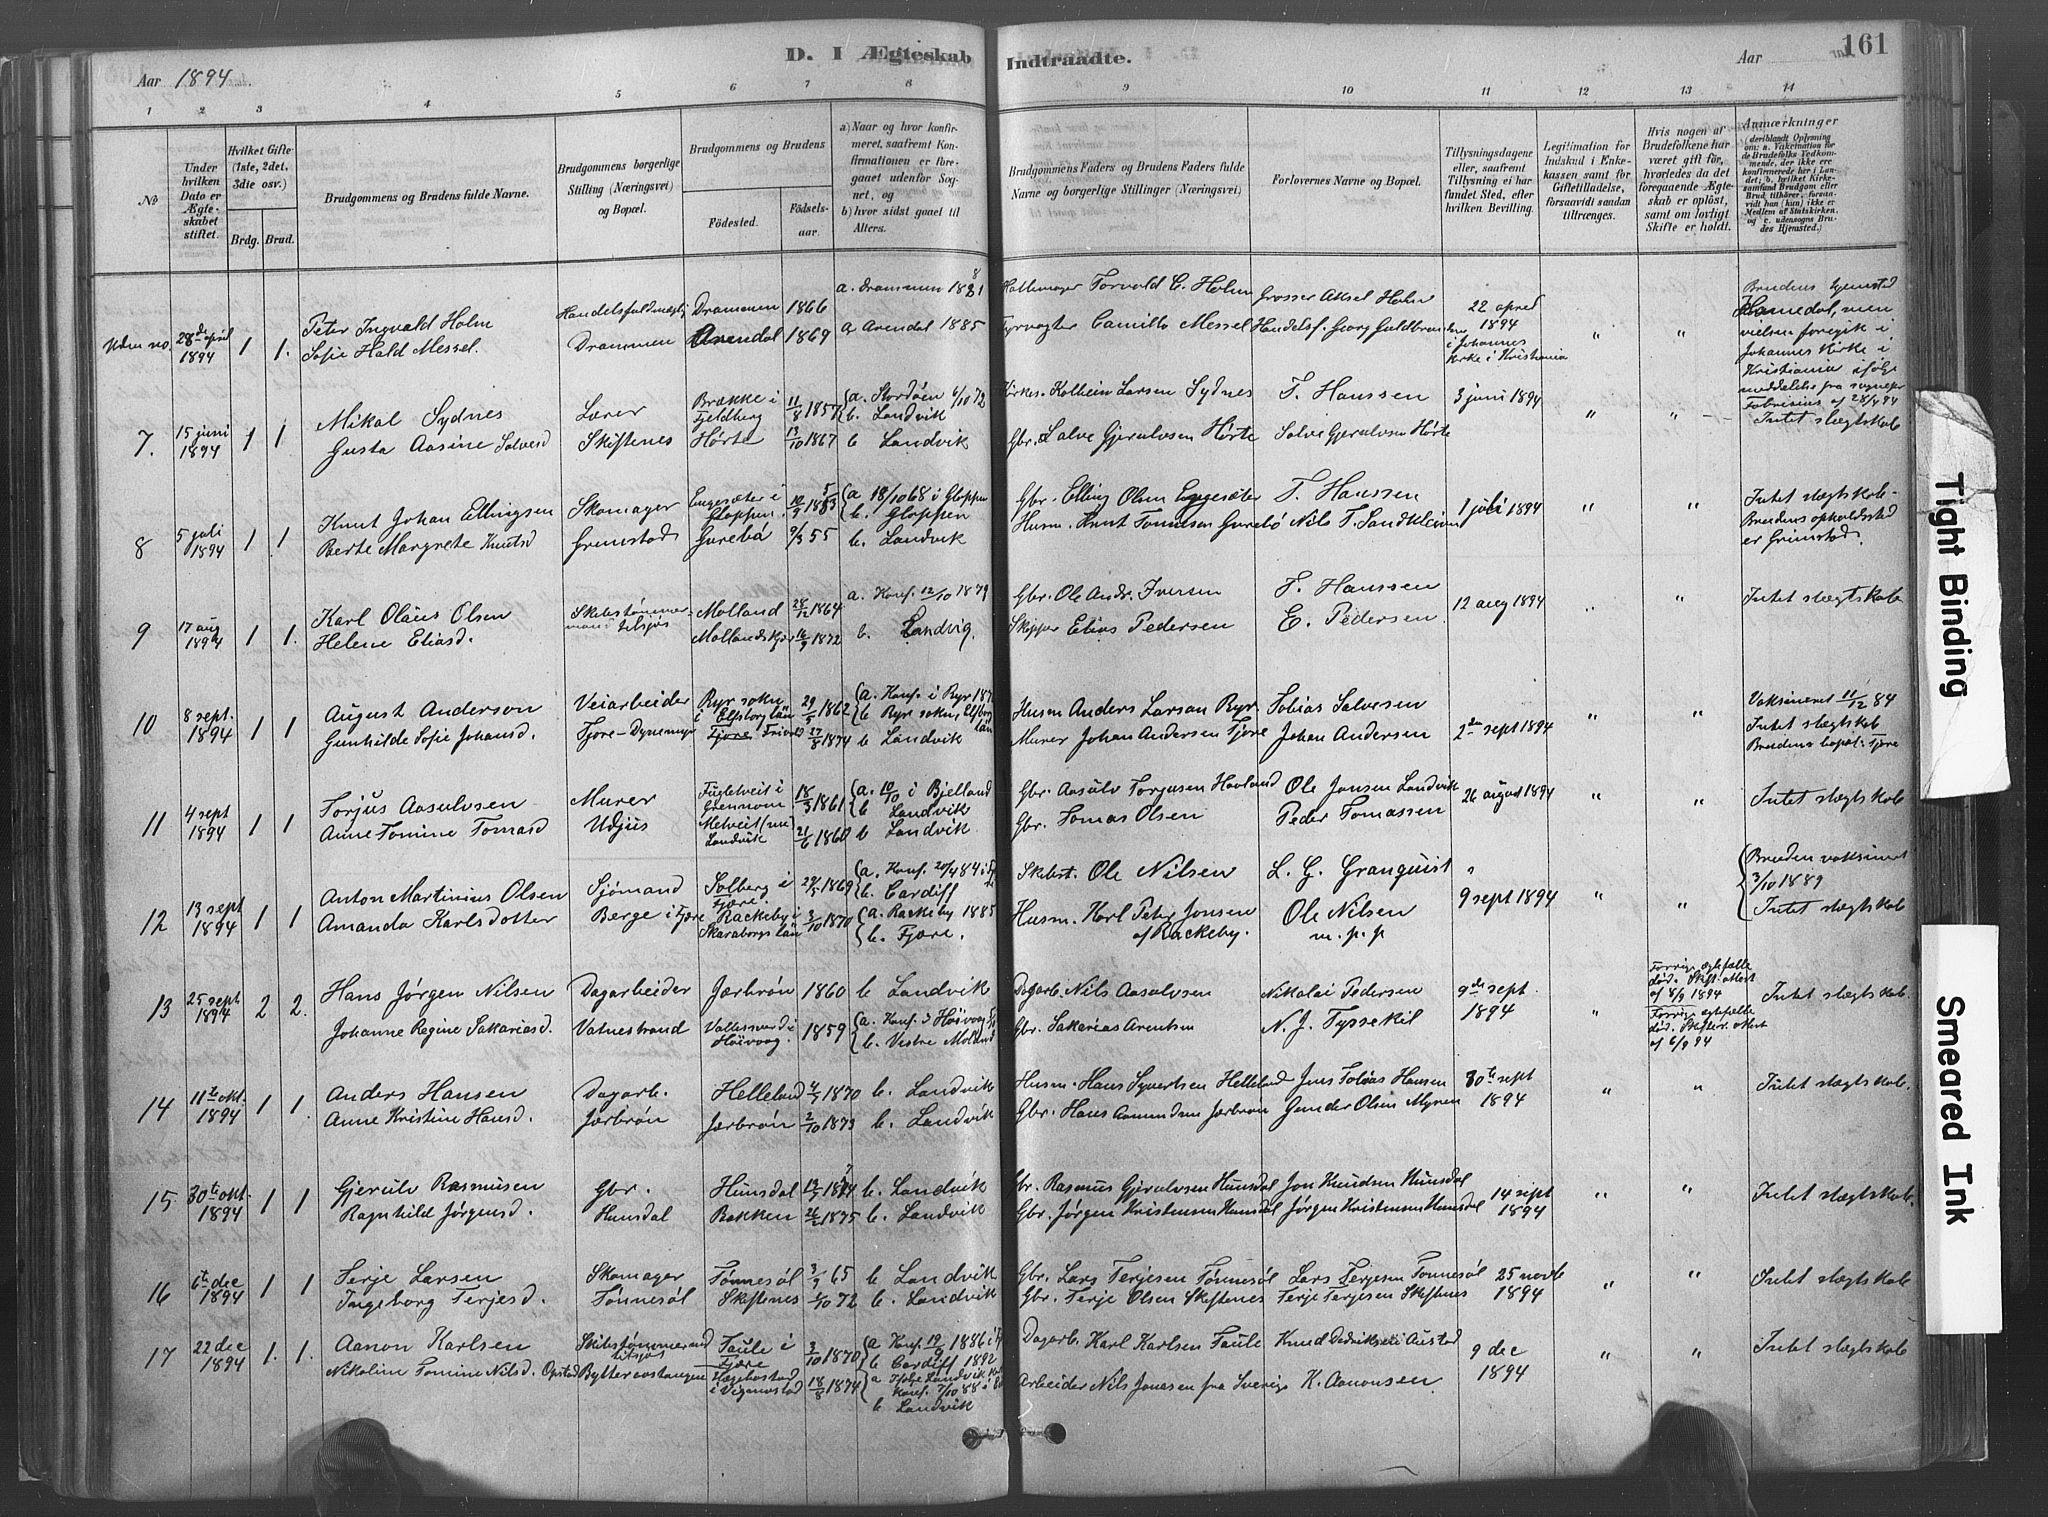 D. I Ægteskab Indtraadte.
161
Aar 1894.
Aar
1 2 3 4 5 6 7 8 9 10 11 12 13 14
No
Under hvilken Dato er Ægteskabet stiftet.
Hvilket Gifte (1ste, 2det, 3die osv.)
Brdg. Brud.
Brudgommens og Brudens fulde Navne.
Brudgommens borgerlige Stilling (Næringsvei) og Bopæl.
Brudgommens og Brudens
Fødested.
Fødselsaar.
a) Naar og hvor konfirmeret, saafremt Konfirmationen er foregaaet udenfor Sognet, og
b) hvor sidst gaaet til Alters.
Brudgommens Faders og Brudens Faders fulde Navne og borgerlige Stillinger (Næringsvei)
Forlovernes Navne og Bopæl.
Tillysningsdagene eller, saafremt Tillysning ei har fundet Sted, efter hvilken Bevilling.
Legitimation for Indskud i Enkekassen samt for Giftetilladelse, forsaavidt saadan tiltrænges.
Hvis nogen af Brudefolkene har været gift før, hvorledes da det foregaaende Ægteskab er opløst, samt om lovligt Skifte er holdt.
Anmærkninger
Uden no. 28de april 1894 1 1.
Peter Ingvald Holm
Sofie Hald Messel.
Handelsfuldmægtig
Drammen
Drammen 1866
Arendal 1869
a. Drammen 1881
a Arendal 1885
Torvald C. Holm
Fyrvogter Camillo Messel
Grosser Aksel Holm
Handelsf. Georg Guldbrandsen
22 april 1894 i Johannes kirke i Kristiania
" "
Brudens hjemsted
men vielsen foregik i Johannes Kirke i Kristiania ifølge meddelelse fra sognepr
7. 15 juni 1894 1 1
Mikal Sydnes
Gusta Aasine Salvesd
Lærer
Skiftenes
Brække i Fjeldberg 11/8 1857
Hørte 13/10 1867
a. Stordøen 6/10 72
b. Landvik
b Landvik
Kirkes. Kolbein Larsen Sydnes
Gbr. Salve Gjerulvsen Hørte
T. Hanssen
Salve Gjerulvsen Hørte
3 juni 1894
" "
Intet slægtskab
8 5 juli 1894 1 1
Knut Johan Ellingsen
Berte Margrete Knutsd
Skomager
Grimstad
Engesæter i Gloppen
Gurebø 9/3 55
a 18/10 68 i Gloppen
b. Gloppen
b. Landvik
Gbr. Elling Olsen Engesæter
Husm. Knut Tomassen Gurebø
T. Hanssen
Nils T. Sandkleiven
1 juli 1894
" "
Intet slægtskab.
Brudens opholdssted er Grimstad.
9 17 aug 1894 1 1.
Karl Olaus Olsen
Helene Eliasd.
Skibstømmermand tilsjøs
Molland 28/12 1864
Mollandskjær 16/9 1872
a. Konf. 12/10 1879
b. Landvig.
Gbr. Ole Andr. Iversen
Skipper Elias Pedersen
T. Hanssen
E. Pedersen
12 aug 1894
" "
Intet slægtskab
10 8 sept. 1894 1 1
August Anderson
Gunhilde Sofie Johansd.
Veiarbeider
Fjære-Dynemyr
Ryr sokn i Elfsborg län 29/5 1862
Fjære 27/8 1874
a. Konf. i Ryr
b Ryr sokn, Elfsborg län
b Landvik
Husm Anders Larson Ryr
Murer Johan Andersen Fjære
Tobias Salvesen
Johan Andersen
2den sept 1894
" "
Vaksineret 11/12 84
Intet slægtskab
Brudens bopæl: Fjære
11 4 sept 1894 1 1
Torjus Aasulvsen
Anne Tomine Tomasd
Murer
Udjus
Fugletveit i Grenmom 18/3 1861
Landvik 21/6 1860
a. 10/10 i Bjelland
b Landvik
b Landvik
Gbr. Aasulv Torgusen Hovland
Gbr. Tomas Olsen
Ole Jensen Landvik
Peder Tomassen
26 august 1894
" "
Intet slægtskab
12 13 sept 1894 1 1
Anton Martinius Olsen
Amanda Karlsdotter
Sjømand
Berge i Fjære
Solberg i Fjære. 1869
Rackeby i Skaraborgs län 3/10 1870
a. Konf. 20/4 84
b. Cardiff
a. Rackeby 1885
b. Fjære.
Skibst. Ole Nilsen
Husm. Karl Peter Jonsen af Rackeby.
L. G. Granquist
Ole Nilsen m. p. p
9 sept 1894
" "
Bruden vaksineret 3/10 1889
Intet slægtskab
13 25 sept 1894 2 2.
Hans Jørgen Nilsen
Johanne Regine Sakariasd.
Dagarbeider
Vatnestrand
Jærbrøn 1860
Høivaag. 1859
b Landvik
a. Konf. i Høivaag
b. Vestre Moland
Dagarb. Nils Aasulvsen
Gbr. Sakarias Arentsen
Nikolai Pedersen
N. J. Tyssekil
9de sept. 1894
"
Forrige ægtefælle død. Skift. attest af 8/9 1894
Forrige ægtefælle død. attest af 6/9 94
Intet slægtskab.
14 11te okt. 1894 1 1.
Anders Hansen
Anne Kristine Hansd.
Dagarb.
Jærbrøn
Helleland 1870
Jærbrøn 2/10 1873
b. Landvik
b. Landvik
Husm. Hans Syvertsen Helleland
Gbr. Hans Aamundsen Jærbrøn
Jens Tobias Hansen
Gunder Olsen Myren
30te sept 1894
" "
Intet slægtskab.
15. 30te okt. 1894 1 1
Gjerulv Rasmusen
Ragnhild Jørgensd.
Gbr.
Hunsdal
Hunsdal
Bakken 1875
b. Landvik
b. Landvik
Gbr. Rasmus Gjerulvsen Hunsdal
Gbr. Jørgen Kristensen Hunsdal
Jon Knudsen Hunsdal
Jørgen Kristensen Hunsdal
14 sept 1894
" "
Intet slægtskab.
16 6te dec 1894 1 1
Terje Larsen
Ingeborg Terjesd.
Skomager
Tønnesøl
Tønnesøl 3/9 65
Skiftenes 72
b Landvik
b. Landvik
Gbr. Lars Terjesen Tønnesøl
Gbr. Terje Olsen Skiftenes
Lars Terjesen Tønnesøl
Terje Terjesen Skiftenes
25 novb 1894
" "
Intet slægtskab
17 22 dec 1894 1. 1.
Aanon Karlsen
Nikoline Tomine Nilsd. Opstad
Skibstømmermand tilsjøs
Faule i Fjære 3/10 1870
Hægebostad i Vigmostad 18/8 1874
a Konf. 19/9 1886 i
b Cardiff 1892
a Ifølge Landvik
konf. 7/10 88 i
b Landvik
Dagarb. Karl Karlsen Faule
Arbeider Nils Jonasen fra Sverige
Knud Austad
K. Aanonsen
9 dec 1894
" "
Intet slægtskab
Tight Binding
Smeared Ink